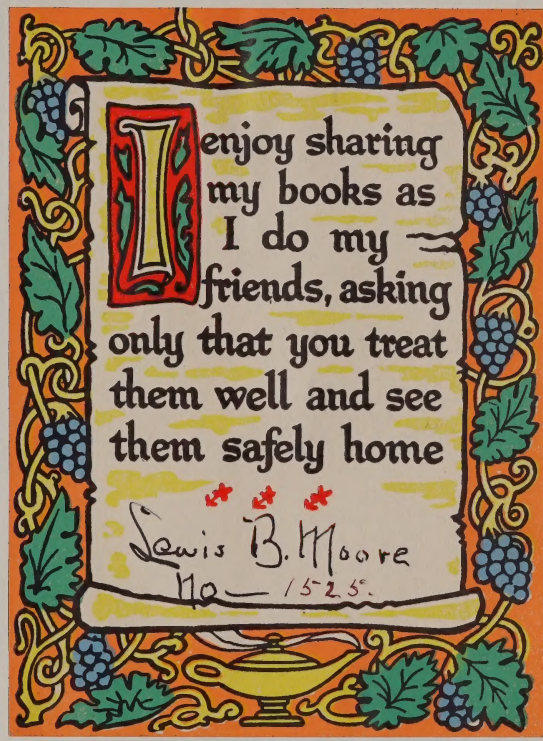 I enjoy sharing
my books as
I do my
friends, asking
only that you treat
them well and see
them safely home
Lewis B. Moore
No — 1525.